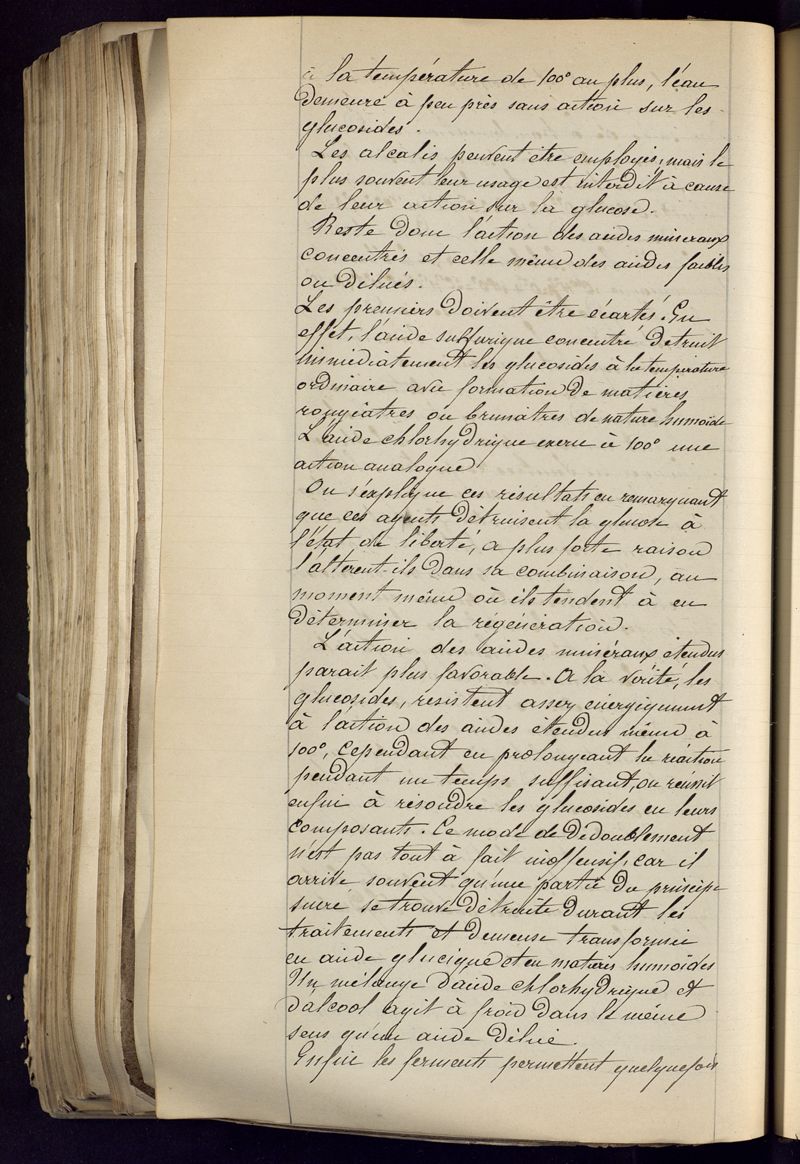 à la température de 100° au plus, l'eau
demeure à peu près sans action sur les
glucosides.
Les alcalis peuvent être employés, mais le
plus souvent leur usage est interdit à cause
de leur action sur la glucose.
Reste donc l'action des acides mineraux
concentrés et celle même des acides faibles
ou dilués.
Les premiers doivent être écartés. En
effet, l'acide sulfurique concentré detruit
immédiatement les glucosides à la température
ordinaire avec formation de matières
rougeâtres ou brunâtres de nature humoïde
L'acide chlorhydrique exerce à 100° une
action analogue
On s'explique ces résultats en remarquant
que ces agents détruisent la glucose à
l'état de liberté, a plus forte raison
l'altèrent-ils dans sa combinaison, au
moment même où ils tendent à en
déterminer la régénération.
L'action des acides minéraux étendus
parait plus favorable. A la vérité, les
glucosides, resistent assez energiquement
à l'action des acides étendus même à
100°, cependant en prolongeant la réaction
pendant un temps suffisant, on réussit
enfin à résoudre les glucosides en leurs
composants. Ce mode de dédoublement
n'est pas tout à fait inoffensif, car il
arrive souvent qu'une partie du principe
sucré se trouve détruite durant les
traitements et demeure transformée
en acide glucique et en matières humoïdes
Un mélange d'acide chlorhydrique et
d'alcool agit à froid dans le même
sens qu'un acide dilué.
Enfin les ferments permettent quelquefois